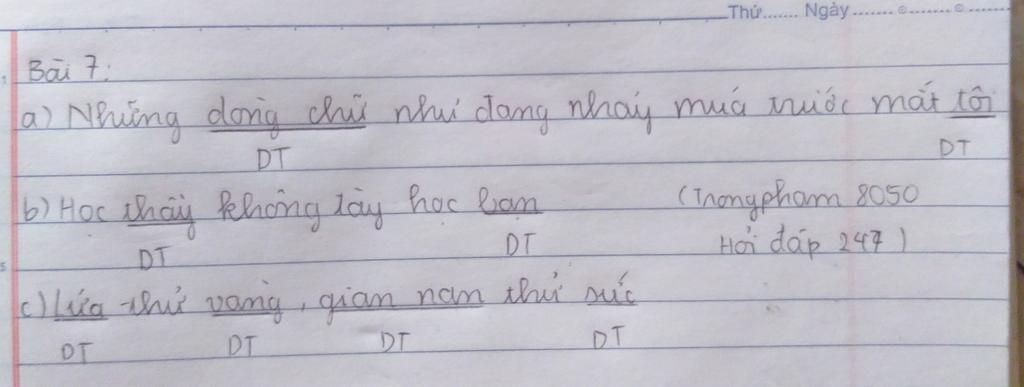 Thứ....... Ngày.......
Bài 7:
a) Những dòng chữ như đang nhảy múa trước mắt tôi
DT DT
b) Học thầy không tày học bạn (Trongpham 8050
DT DT Hỏi đáp 247)
c) Lửa thử vàng, gian nan thử sức
DT DT DT DT